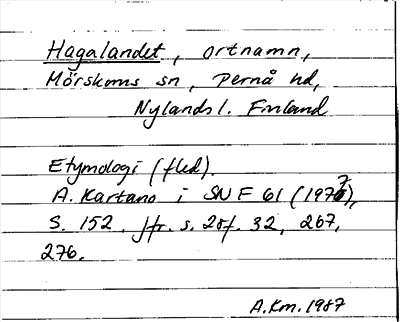 Hagalandet, ortnamn,
Mörskoms sn, Pernå hd,
Nylands l. Finland
Etymologi (fled).
A. Kartano i SNF 61 (1977),
S. 152. Jfr. s. 25f. 32, 267,
276.
A.Km. 1987